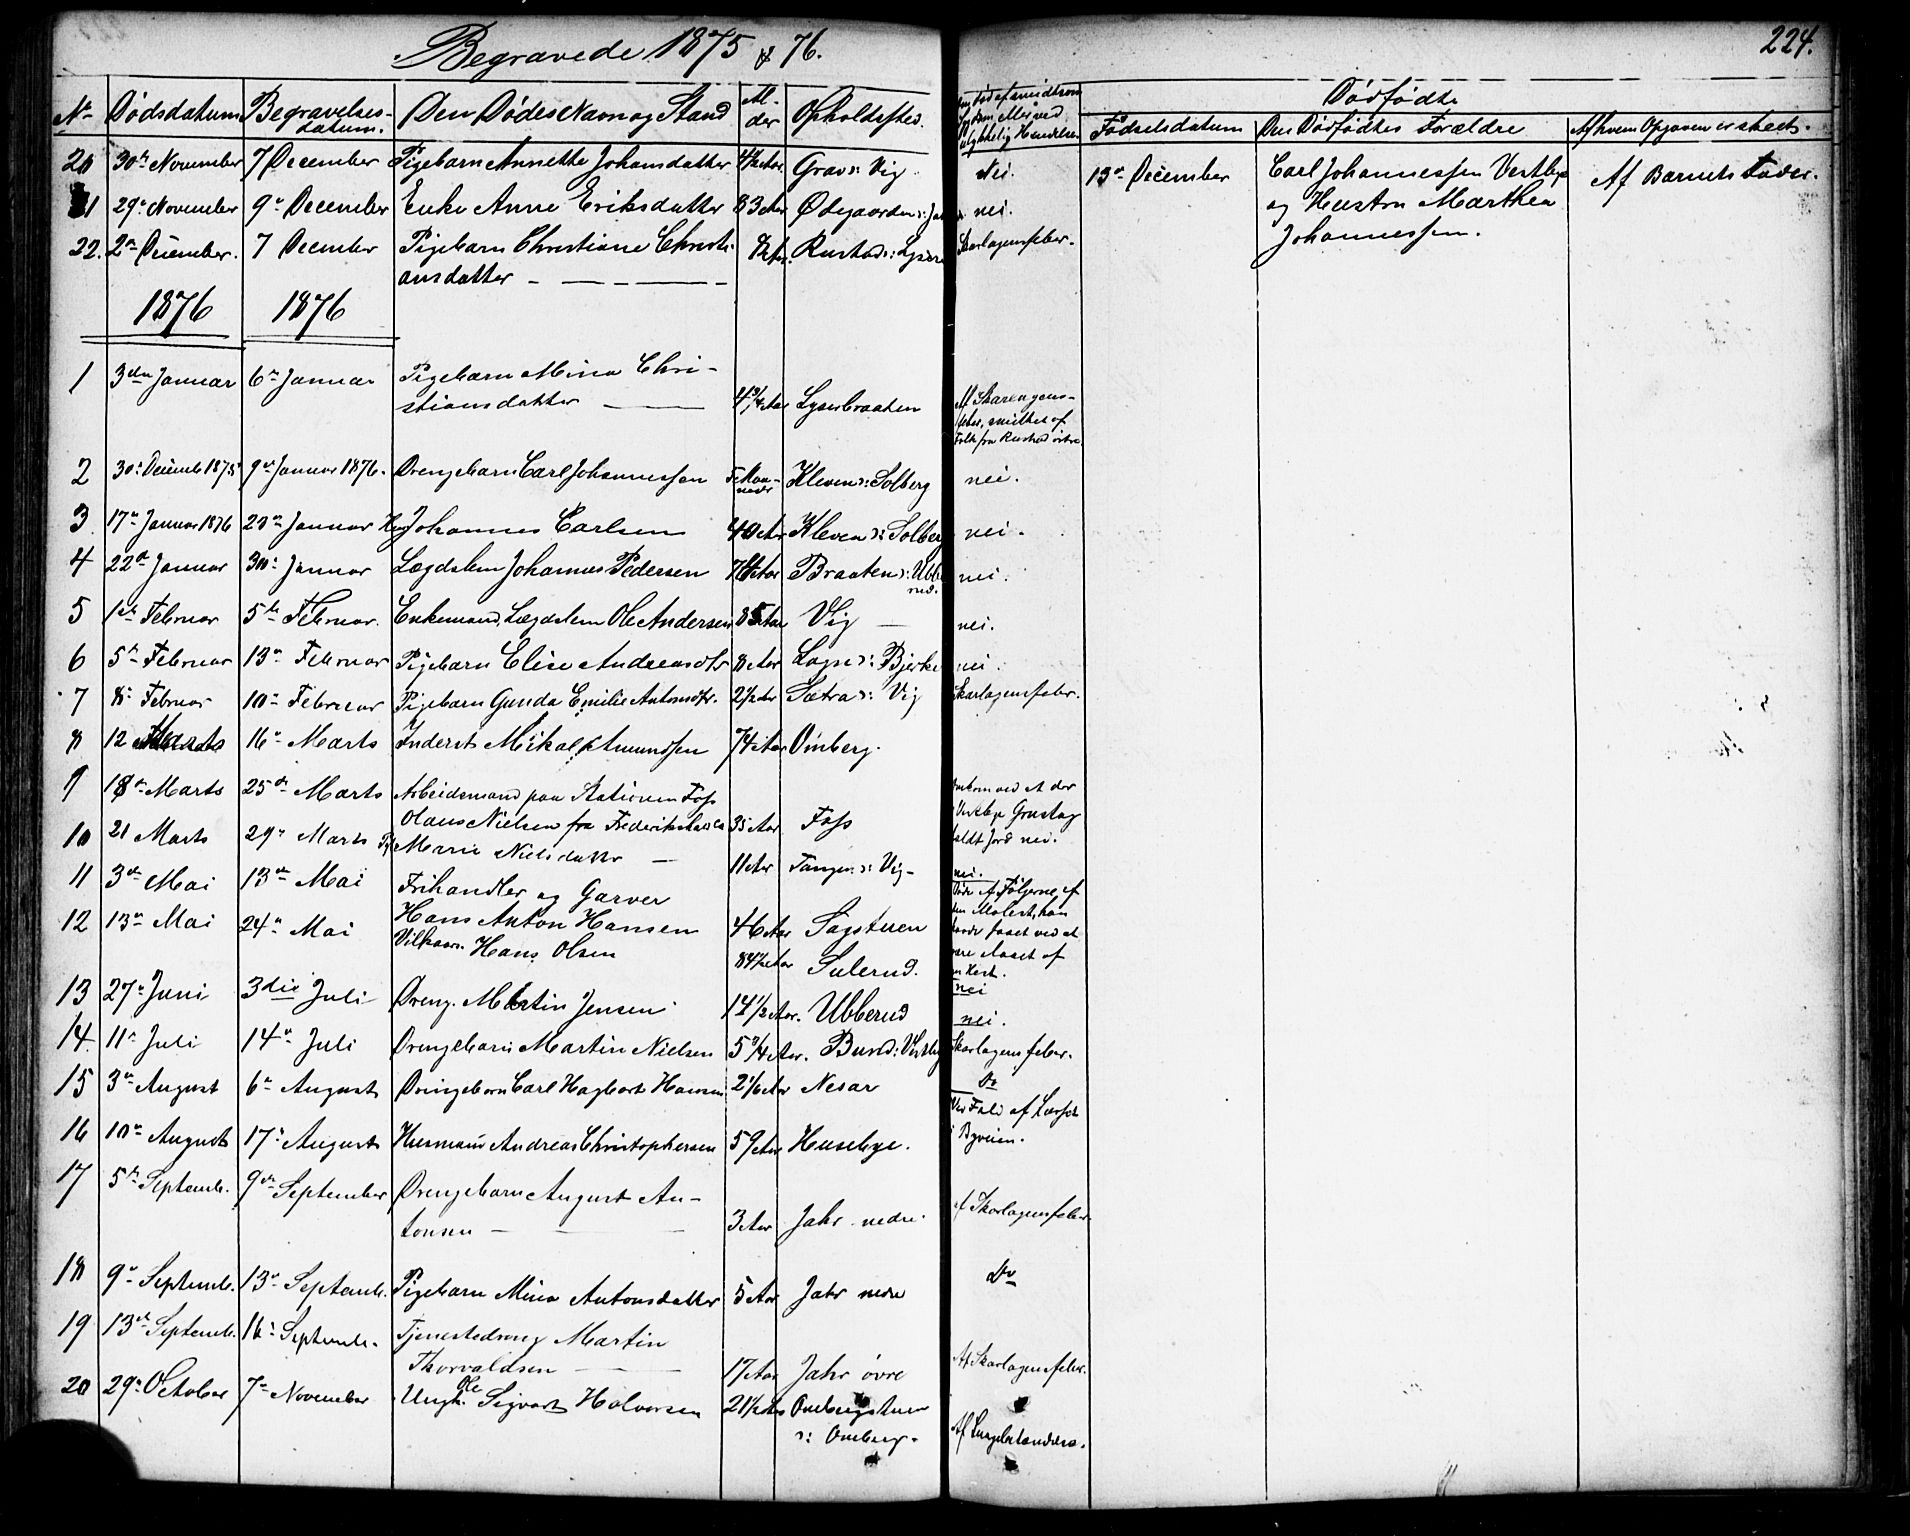 Begravede 1875 & 76.
224.
No Dødsdatum Begravelsesdatum. Den Dødes Navn og Stand Alder Opholdssted.
Dødfødte
Fødselsdatum Den Dødfødtes Forældre Af hvem Opgaven er skeet.
20 30te November 7 December Pigebarn Annette Johansdatter 4½ Aar Grav s: Vig. Nei.
13de December Carl Johannessen Vestbye Af Barnets Fader.
og Hustru Marthea
Johannessen.
21 29de November 9de December Enke Anne Eriksdatter 83 Aar Ødegaarden nei.
22. 2den December. 7 December Pigebarn Christiane Christi- Rustad s: Skarlagensfeber.
ansdatter
1876 1876
1 3die Januar 6te Januar Pigebarn Mina Chri-
stiansdatter 4¾ Aar Lyserbraaten Af Skarlagens-
feber, smittet af
Folk fra Rustad
2 30te Decemb 1875 9de Januar 1876. Drengebarn Carl Johannessen Maaneder Kleven s: Solberg nei.
3. 17de Januar 1876 Januar Johannes Carlsen 40 Aar Kleven s: Solberg nei.
4 22de Januar 30te Januar Lægdslem Johannes Pedersen Aar Braaten s: Ubberud. nei.
5 1ste Februar 5te Februar. Enkemand, Lægdslem Ole Andersen 85 Aar Vig nei.
6 5te Februar 13de Februar Pigebarn Elise Andreasdtr 8 Aar s: Bjerke nei.
7 8de Februar 10de Februar Pigebarn Gunda Emilie Antonsdtr. 2½ Aar Sætra s: Vig Skarlagensfeber.
8 12 Marts 16de Marts Inderst Mikal Amundsen 74 Aar Omberg.
9 18de Marts 25de Marts Arbeidsmand paa Stationen Foss
Olaus Nielsen fra Frederikshald 35 Aar Foss omkom ved at der
Vestbye Grustag
faldt Jord ned.
10 21 Marts 29de Marts Marie Nielsdatter 11 Aar Tangen s: Vig nei.
11 3die Mai 13de Mai Frihandler og Garver
Hans Anton Hansen 46 Aar Sagstuen Døde Af Følgerne af
den Molest, han
havde faaet ved at
være slaaet af
en Hest.
12 13de Mai 24de Mai Vilkaarm. Hans Olsen 84½ Aar Sulerud. nei
13 27de Juni 3die Juli Dreng. Martin Jensen 14½ Aar. Ubberud nei.
14. 11te Juli 14de Juli Drengebarn Martin Nielsen 5¾ Aar. Bund s: Vestby Skarlagensfeber.
15 3die August 6te August Drengebarn Carl Hagbart Hansen 2 1/6 Aar Nesar Do
16 10de August 17de August Husmand Andreas Christophersen 59 Aar Husebye. Ved Fald af Læsset
i Byveien.
17 5te Septemb. 9de September Drengebarn August An-
tonsen 3 Aar Jahr nedre. Af Skarlagensfeber
18 9de Septemb. 13de Septemb. Pigebarn Mina Antonsdatter 5 Aar Jahr nedre Do
19 13de Septemb. 16de Septemb. Tjenestedreng Martin
Thorvaldsen 17 Aar Jahr øvre Af Skarlagensfeber.
20 29de October 7de November Ungk. Ole Sigvart Halvorsen 21½ Aar Ombergstuen
s: Omberg. Af Lungebetændelse.